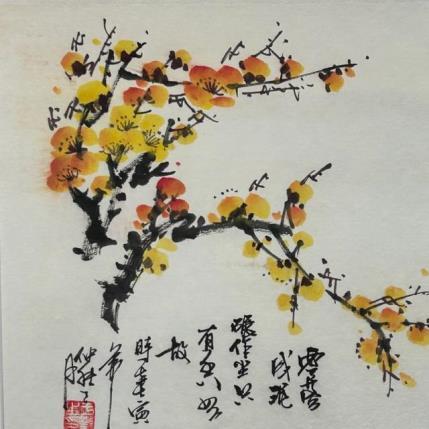 零落
成泥
碾作尘只
有香如
故
時壬寅
年